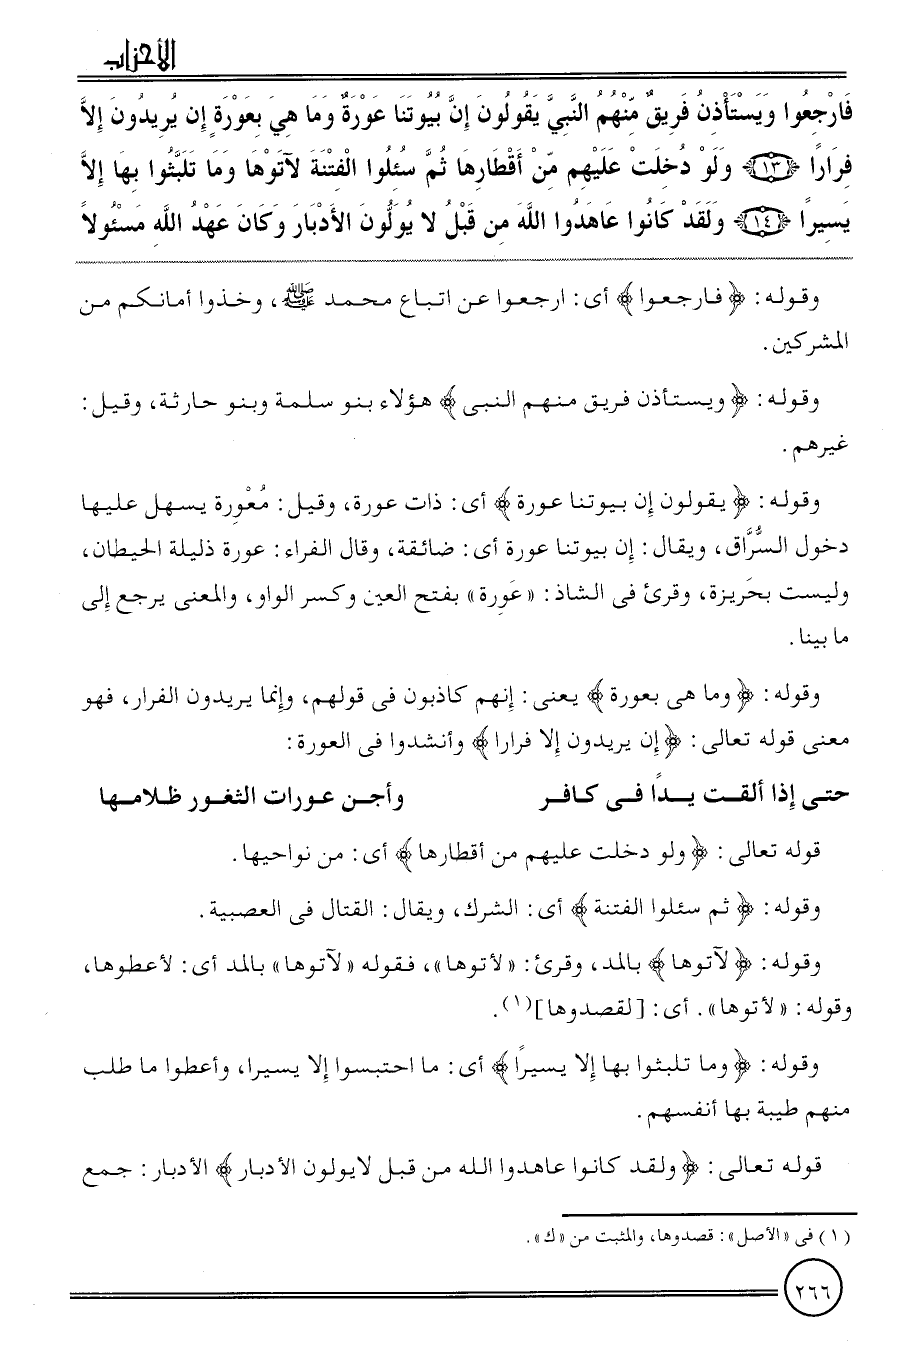 الأحزاب
فَارْجِعُوا وَيَسْتَأْذِنُ فَرِيقٌ مِّنْهُمُ النَّبِيَّ يَقُولُونَ إِنَّ بُيُوتَنَا عَوْرَةٌ وَمَا هِيَ بِعَوْرَةٍ إِن يُرِيدُونَ إِلاَّ
فِرَارًا ﴿١٣﴾ وَلَوْ دُخِلَتْ عَلَيْهِم مِّنْ أَقْطَارِهَا ثُمَّ سُئِلُوا الْفِتْنَةَ لآتَوْهَا وَمَا تَلَبَّثُوا بِهَا إِلاَّ
يَسِيرًا ﴿١٤﴾ وَلَقَدْ كَانُوا عَاهَدُوا اللَّهَ مِن قَبْلُ لا يُوَلُّونَ الأَدْبَارَ وَكَانَ عَهْدُ اللَّهِ مَسْئُولاً
وقوله: ﴿فارجعوا﴾ أى: ارجعوا عن اتباع محمد ﷺ، وخذوا أمانكم من
المشركين.
وقوله: ﴿ويستأذن فريق منهم النبى﴾ هؤلاء بنو سلمة وبنو حارثة، وقيل:
غيرهم.
وقوله: ﴿يقولون إن بيوتنا عورة﴾ أى: ذات عورة، وقيل: مُعْورة يسهل عليها
دخول السُّرَّاق، ويقال: إن بيوتنا عورة أى: ضائقة، وقال الفراء: عورة ذليلة الحيطان،
وليست بحَريزة، وقرئ فى الشاذ: «عَوِرة» بفتح العين وكسر الواو، والمعنى يرجع إلى
ما بينا.
وقوله: ﴿وما هى بعورة﴾ يعنى: إنهم كاذبون فى قولهم، وإنما يريدون الفرار، فهو
معنى قوله تعالى: ﴿إن يريدون إلا فرارا﴾ وأنشدوا فى العورة:
حتى إذا ألقت يداً فى كافر وأجن عورات الثغور ظلامها
قوله تعالى: ﴿ولو دخلت عليهم من أقطارها﴾ أى: من نواحيها.
وقوله: ﴿ثم سئلوا الفتنة﴾ أى: الشرك، ويقال: القتال فى العصبية.
وقوله: ﴿لآتوها﴾ بالمد، وقرئ: «لأتوها»، فقوله «لآتوها» بالمد أى: لأعطوها،
وقوله: «لأتوها». أى: [لقصدوها](١).
وقوله: ﴿وما تلبثوا بها إلا يسيرًا﴾ أى: ما احتبسوا إلا يسيرا، وأعطوا ما طلب
منهم طيبة بها أنفسهم.
قوله تعالى: ﴿ولقد كانوا عاهدوا الله من قبل لايولون الأدبار﴾ الأدبار: جمع
(١) فى «الأصل»: قصدوها، والمثبت من «ك».
٢٦٦